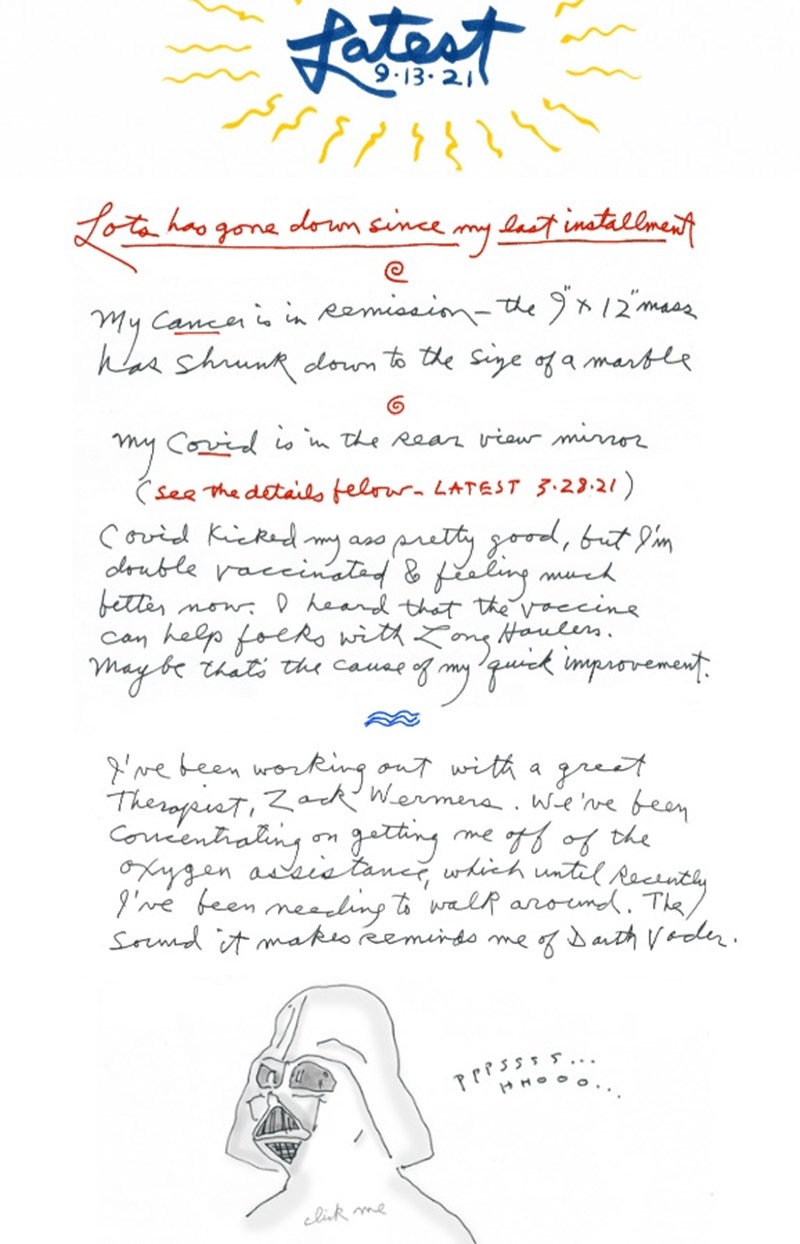 Latest
9·13·21
Lots has gone down since my last installment
My Cancer is in remission – the 9" x 12" mass
has shrunk down to the size of a marble
My Covid is in the rear view mirror
(see the details below – LATEST 3·28·21)
Covid kicked my ass pretty good, but I'm
double vaccinated & feeling much
better now. I heard that the vaccine
can help folks with Long Haulers.
Maybe that's the cause of my quick improvement.
I've been working out with a great
Therapist, Zack Wermers. We've been
concentrating on getting me off of the
oxygen assistance, which until recently
I've been needing to walk around. The
sound it makes reminds me of Darth Vader.
PPPSSSS...
HHOOO...
click me